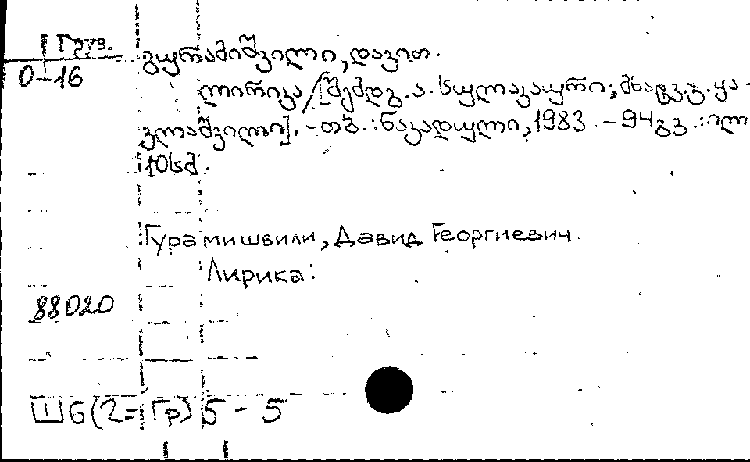 Груз.
0-16
გურამიშვილი, დავით.
ლირიკა / [შემდგ. ა. სულაკაური; მხატვ. გ. ყა-
ვლაშვილი]. - თბ. : ნაკადული, 1983. - 94გვ. : ილ
10სმ.
Гурамишвили, Давид Георгиевич.
Лирика:
88020
Ш6(2=Гр)5-5